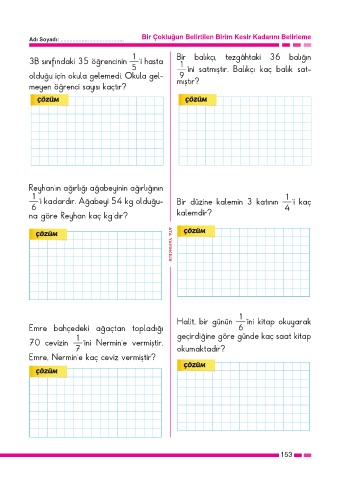 Adı Soyadı: ...............................
Bir Çokluğun Belirtilen Birim Kesir Kadarını Belirleme
3B sınıfındaki 35 öğrencinin 1/5 'i hasta
olduğu için okula gelemedi. Okula gel-
meyen öğrenci sayısı kaçtır?
ÇÖZÜM
Bir balıkçı, tezgâhtaki 36 balığın
1/9 'ini satmıştır. Balıkçı kaç balık sat-
mıştır?
ÇÖZÜM
Reyhan'ın ağırlığı ağabeyinin ağırlığının
1/6 'i kadardır. Ağabeyi 54 kg olduğu-
na göre Reyhan kaç kg'dır?
ÇÖZÜM
Bir düzine kalemin 3 katının 1/4 'i kaç
kalemdir?
ÇÖZÜM
Emre bahçedeki ağaçtan topladığı
70 cevizin 1/7 'ini Nermin'e vermiştir.
Emre, Nermin'e kaç ceviz vermiştir?
ÇÖZÜM
Halit, bir günün 1/6 'ini kitap okuyarak
geçirdiğine göre günde kaç saat kitap
okumaktadır?
ÇÖZÜM
153